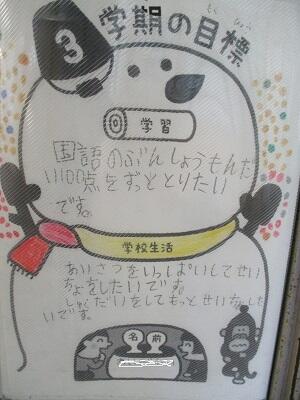 3学期の目標
もく ひょう
学習
国語のぶんしょうもんだ
い100点をずっととりたい
です。
学校生活
あいさつをいっぱいしてせい
ちょをしたいです。
しゅくだいをしてもっとせいちょした
いです。
名前